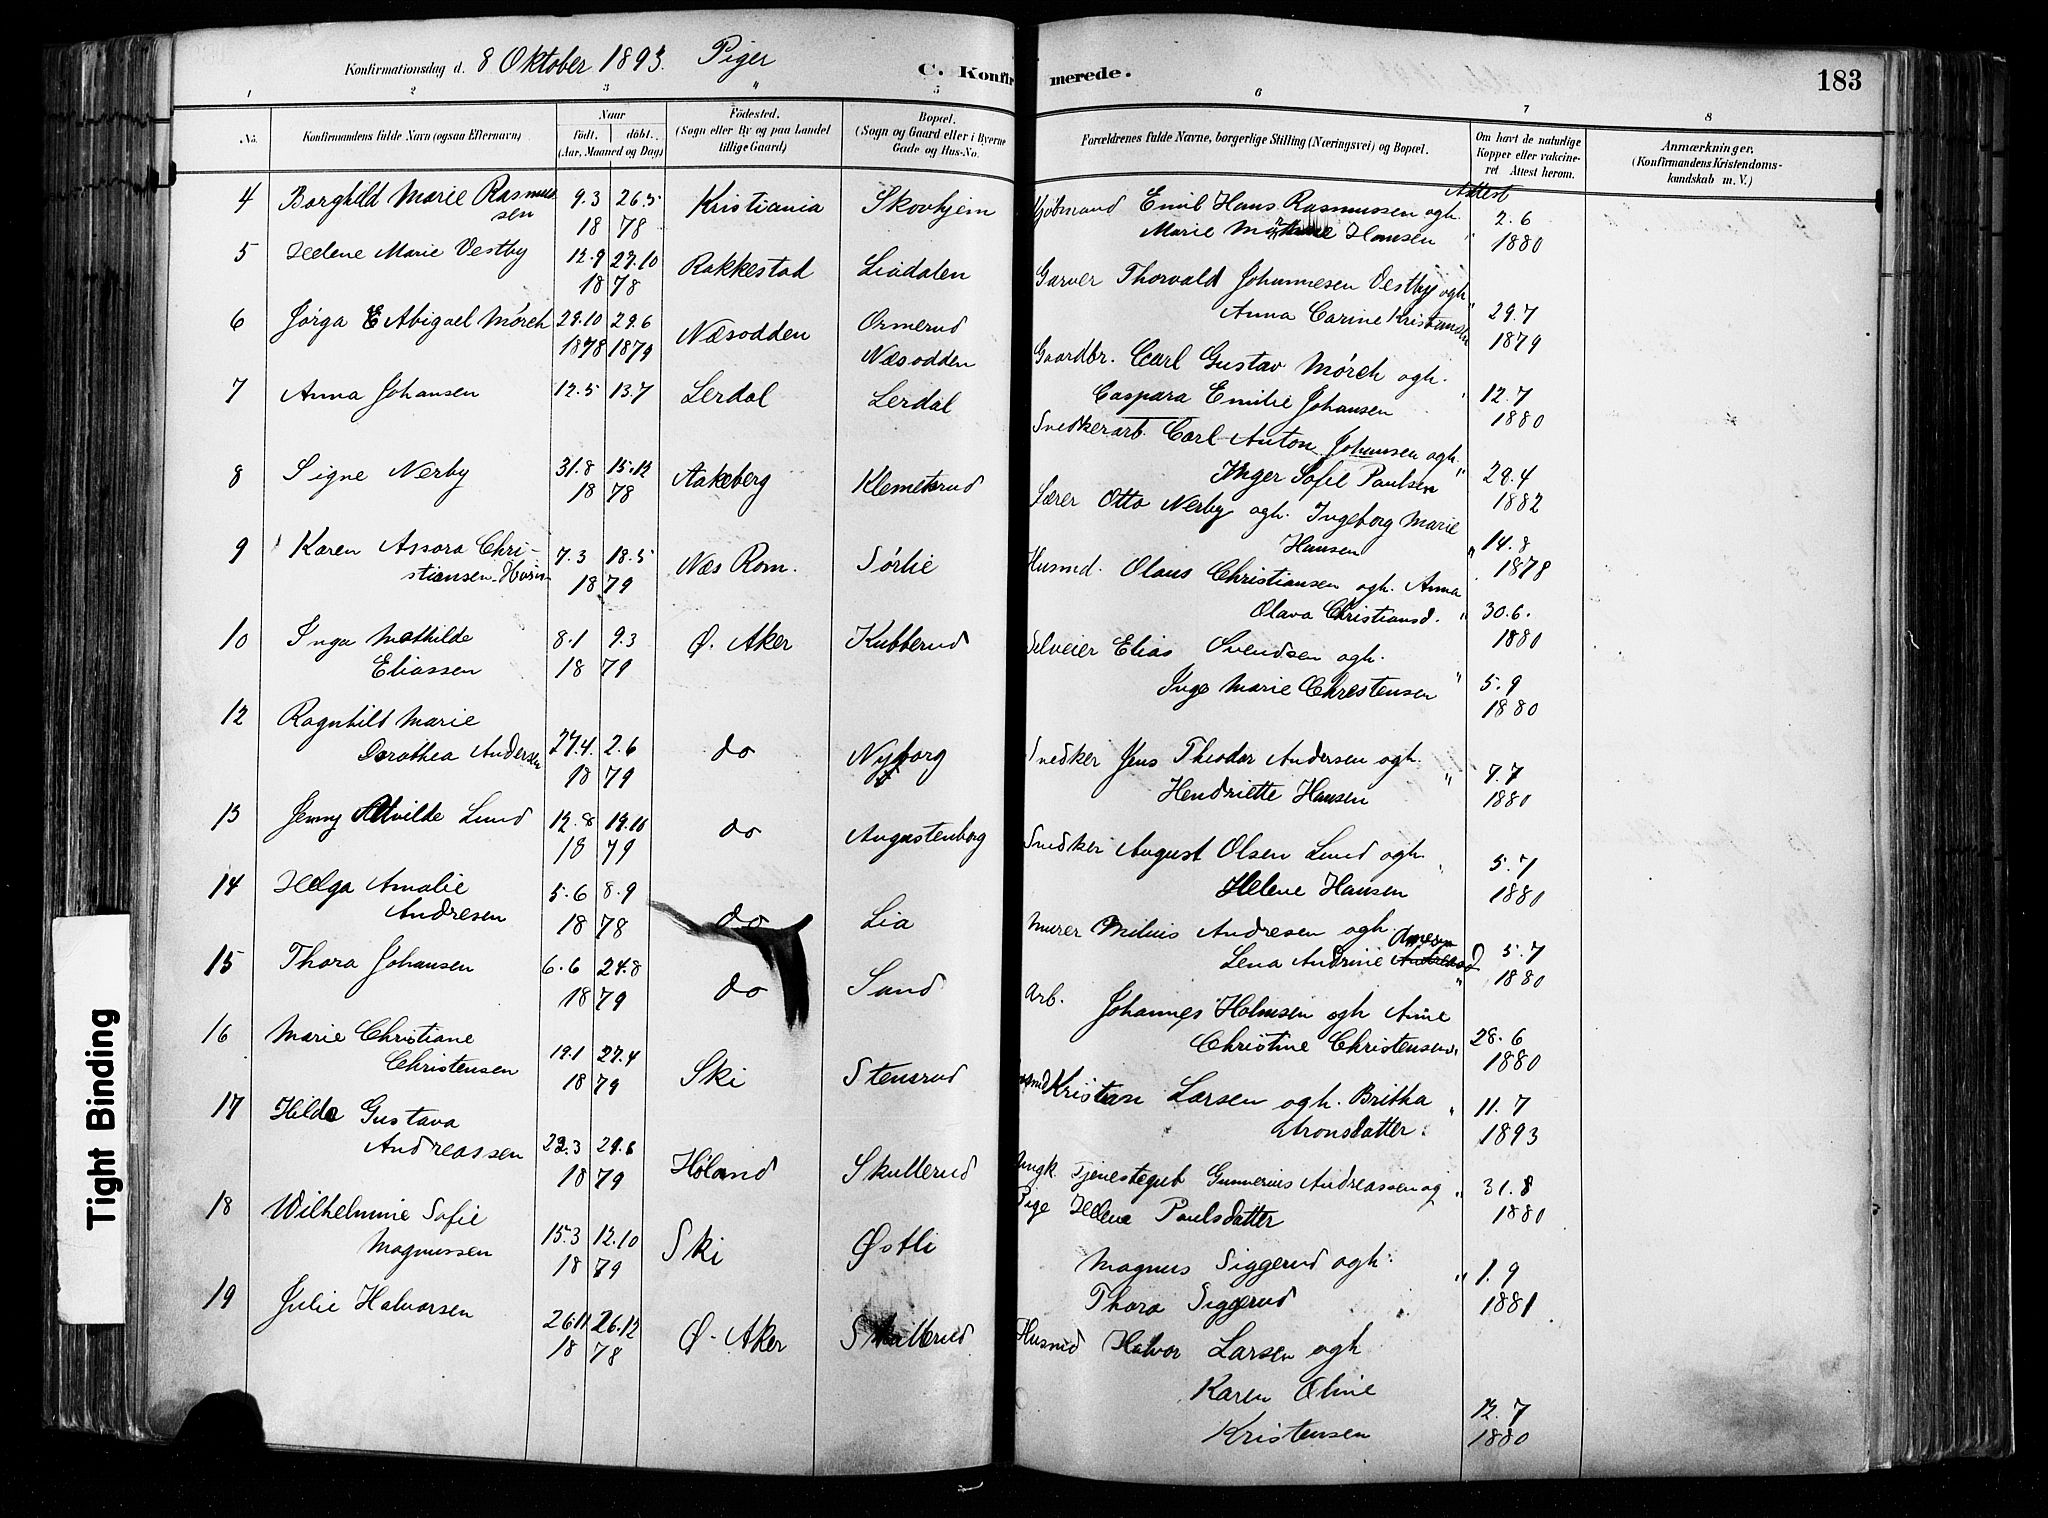 Konfirmationsdag d. 8 Oktober 1893. Piger
C. Konfirmerede.
183
1 2 3 4 5 6 7 8
No. Konfirmandens fulde Navn (ogsaa Efternavn) Naar født. døbt. (Aar, Maaned og Dag) Födested. (Sogn eller By og paa Landet tillige Gaard) Bopæl. (Sogn og Gaard eller i Byerne Gade og Hus-No. Forældrenes fulde Navne, borgerlige Stilling (Næringsvei) og Bopæl. Om havt de naturlige Kopper eller vakcineret Attest herom. Anmærkninger. (Konfirmandens Kristendomskundskab m. V.)
4 Borghild Marie Rasmussen 9.3 26.5 1878 Kristiania Skovhjem Kjöbmand Emil Hans Rasmussen ogh. Marie Hansen Attest 2.6 1880
5 Helene Marie Vestby 12.9 27.10 1878 Rakkestad Liadalen Garver Thorvald Johannesen Vestby ogh. Anna Carine " 29.7 1879
6 Jørga E Abigael Mørch 29.10 1878 29.6 1879 Næsodden Ormerud Næsodden Gaardbr. Carl Gustav Mørch ogh. Caspara Emilie Johansen " 12.7 1880
7 Anna Johansen 12.5 13.7 Lerdal Lerdal Snedkerarb. Carl Anton Johansen ogh. Inger Sofie Paulsen " 29.4 1882
8 Signe Nerby 31.8 15.12 1878 Aakeberg Klemetsrud Lærer Otto Nerby ogh. Ingeborg Marie Hansen " 14.8 1878
9 Karen Assora Christiansen 7.3 18.5 1879 Næs Rom. Sørlie Husmd. Olaus Christiansen ogh. Anna Olava Christiansd. " 30.6. 1880
10 Inga Mathilde Eliassen 8.1 9.3 1879 Ø. Aker Kubberud Selveier Elias Svendsen ogh. Inge Marie Christensen " 5.9 1880
12 Ragnhild Marie Dorothea Andersen 27.4. 2.6 1879 do Nyborg Snedker Jens Theodor Andersen ogh. Henriette Hansen " 7.7 1880
13 Jenny Alvilde Lund 12.8 19.10 1879 do Augustenborg Snedker August Olsen Lund ogh. Helene Hansen " 5.7 1880
14 Helga Amalie Andresen 5.6 8.9 1878 do Lia Murer Milius Andresen ogh. Lena Andrine " 5.7 1880
15 Thora Johansen 6.6 24.8 1879 do Sand Arb. Johannes Holmsen ogh Anne Christine Christensen " 28.6 1880
16 Marie Christiane Christensen 19.1 27.4 1879 Ski Stensrud Kristian Larsen ogh. Britha Aronsdatter " 11.7 1893
17 Hilda Gustava Andreassen 22.3 29.6 1879 Høland Skullerud Ungk. Tjenestegut Gunnerius Andreassen og Pige Helena Paulsdatter " 31.8 1880
18 Wilhelmine Sofie Magnussen 15.3 12.10 1879 Ski Østli Magnus Siggerud ogh. Thora Siggerud " 1.9 1881
19 Julie Halvorsen 26.11 26.12 1878 Ø. Aker Skullerud Husmd Halvor Larsen ogh Karen Oline Kristensen 12.7 1880
Tight Binding